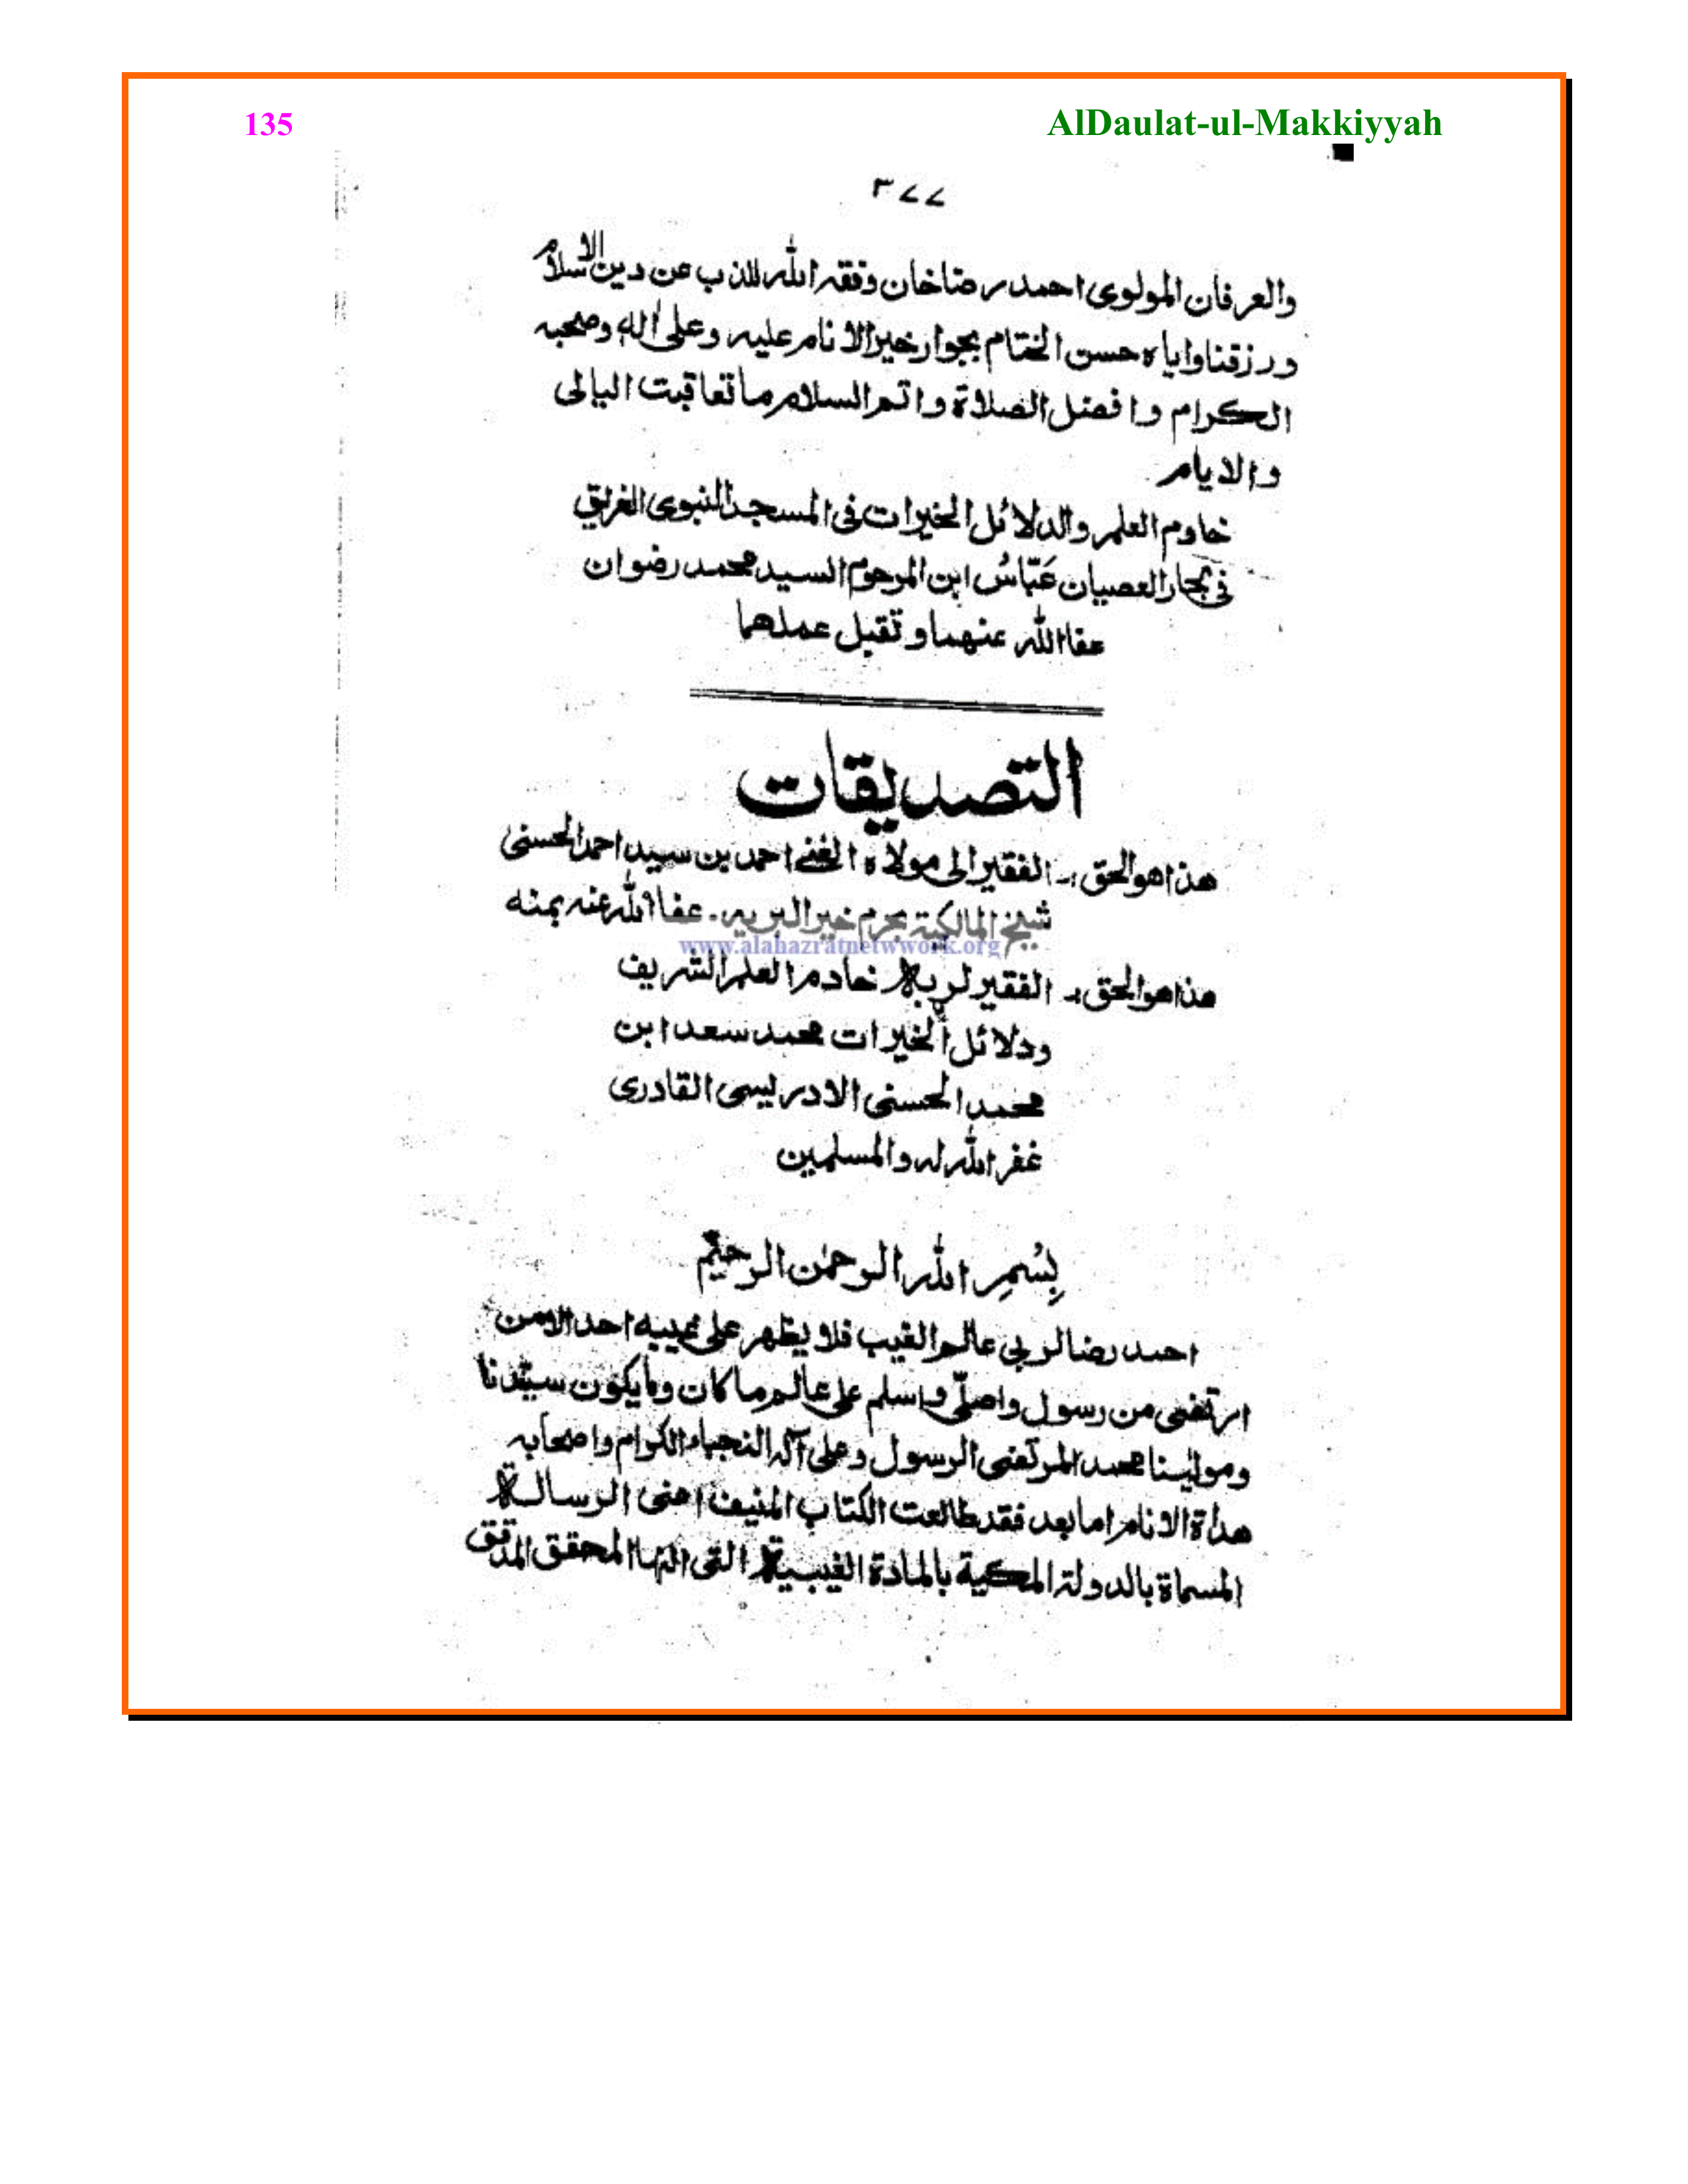 135 AlDaulat-ul-Makkiyyah
٣٧٧
والعرفان المولوى احمد رضاخان وفقه الله للذب عن دين الاسلام
ورزقنا واياه حسن الختام بجوار خير الانام عليه وعلى اله وصحبه
الكرام وافضل الصلاة واتم السلام ما تعاقبت اليالى
والايام
خادم العلم والدلائل الخيرات فى المسجد النبوى الغريق
فى بحار العصيان عَبّاسُ ابن المرحوم السيد محمد رضوان
عفا الله عنهما وتقبل عملهما
التصديقات
هذا هو الحق :ـ الفقير الى مولاه الغنے احمد بن سيد احمد الحسنى
شيخ المالكية بحرم خير البريه ـ عفا الله عنه بمنه
www.alahazratnetwwork.org
هذا هو الحق :ـ الفقير لربه خادم العلم الشريف
ودلائل الخيرات محمد سعد ابن
محمد الحسنى الادريسى القادرى
غفر الله له والمسلمين
بِسْمِ الله الرحمٰن الرحيم
احمد رضا لربى عالم الغيب فلا يظهر على غيبه احد الا من
ارتضى من رسول واصلّى واسلم على عالم ما كان وما يكون سيّدنا
ومولينا محمد المرتضى الرسول وعلى آله النجباء الكرام واصحابه
هداة الانام اما بعد فقد طالعت الكتاب المنيف اعنى الرسالة
المسماة بالدولة المكية بالمادة الغيبية التى الفها المحقق المدقق